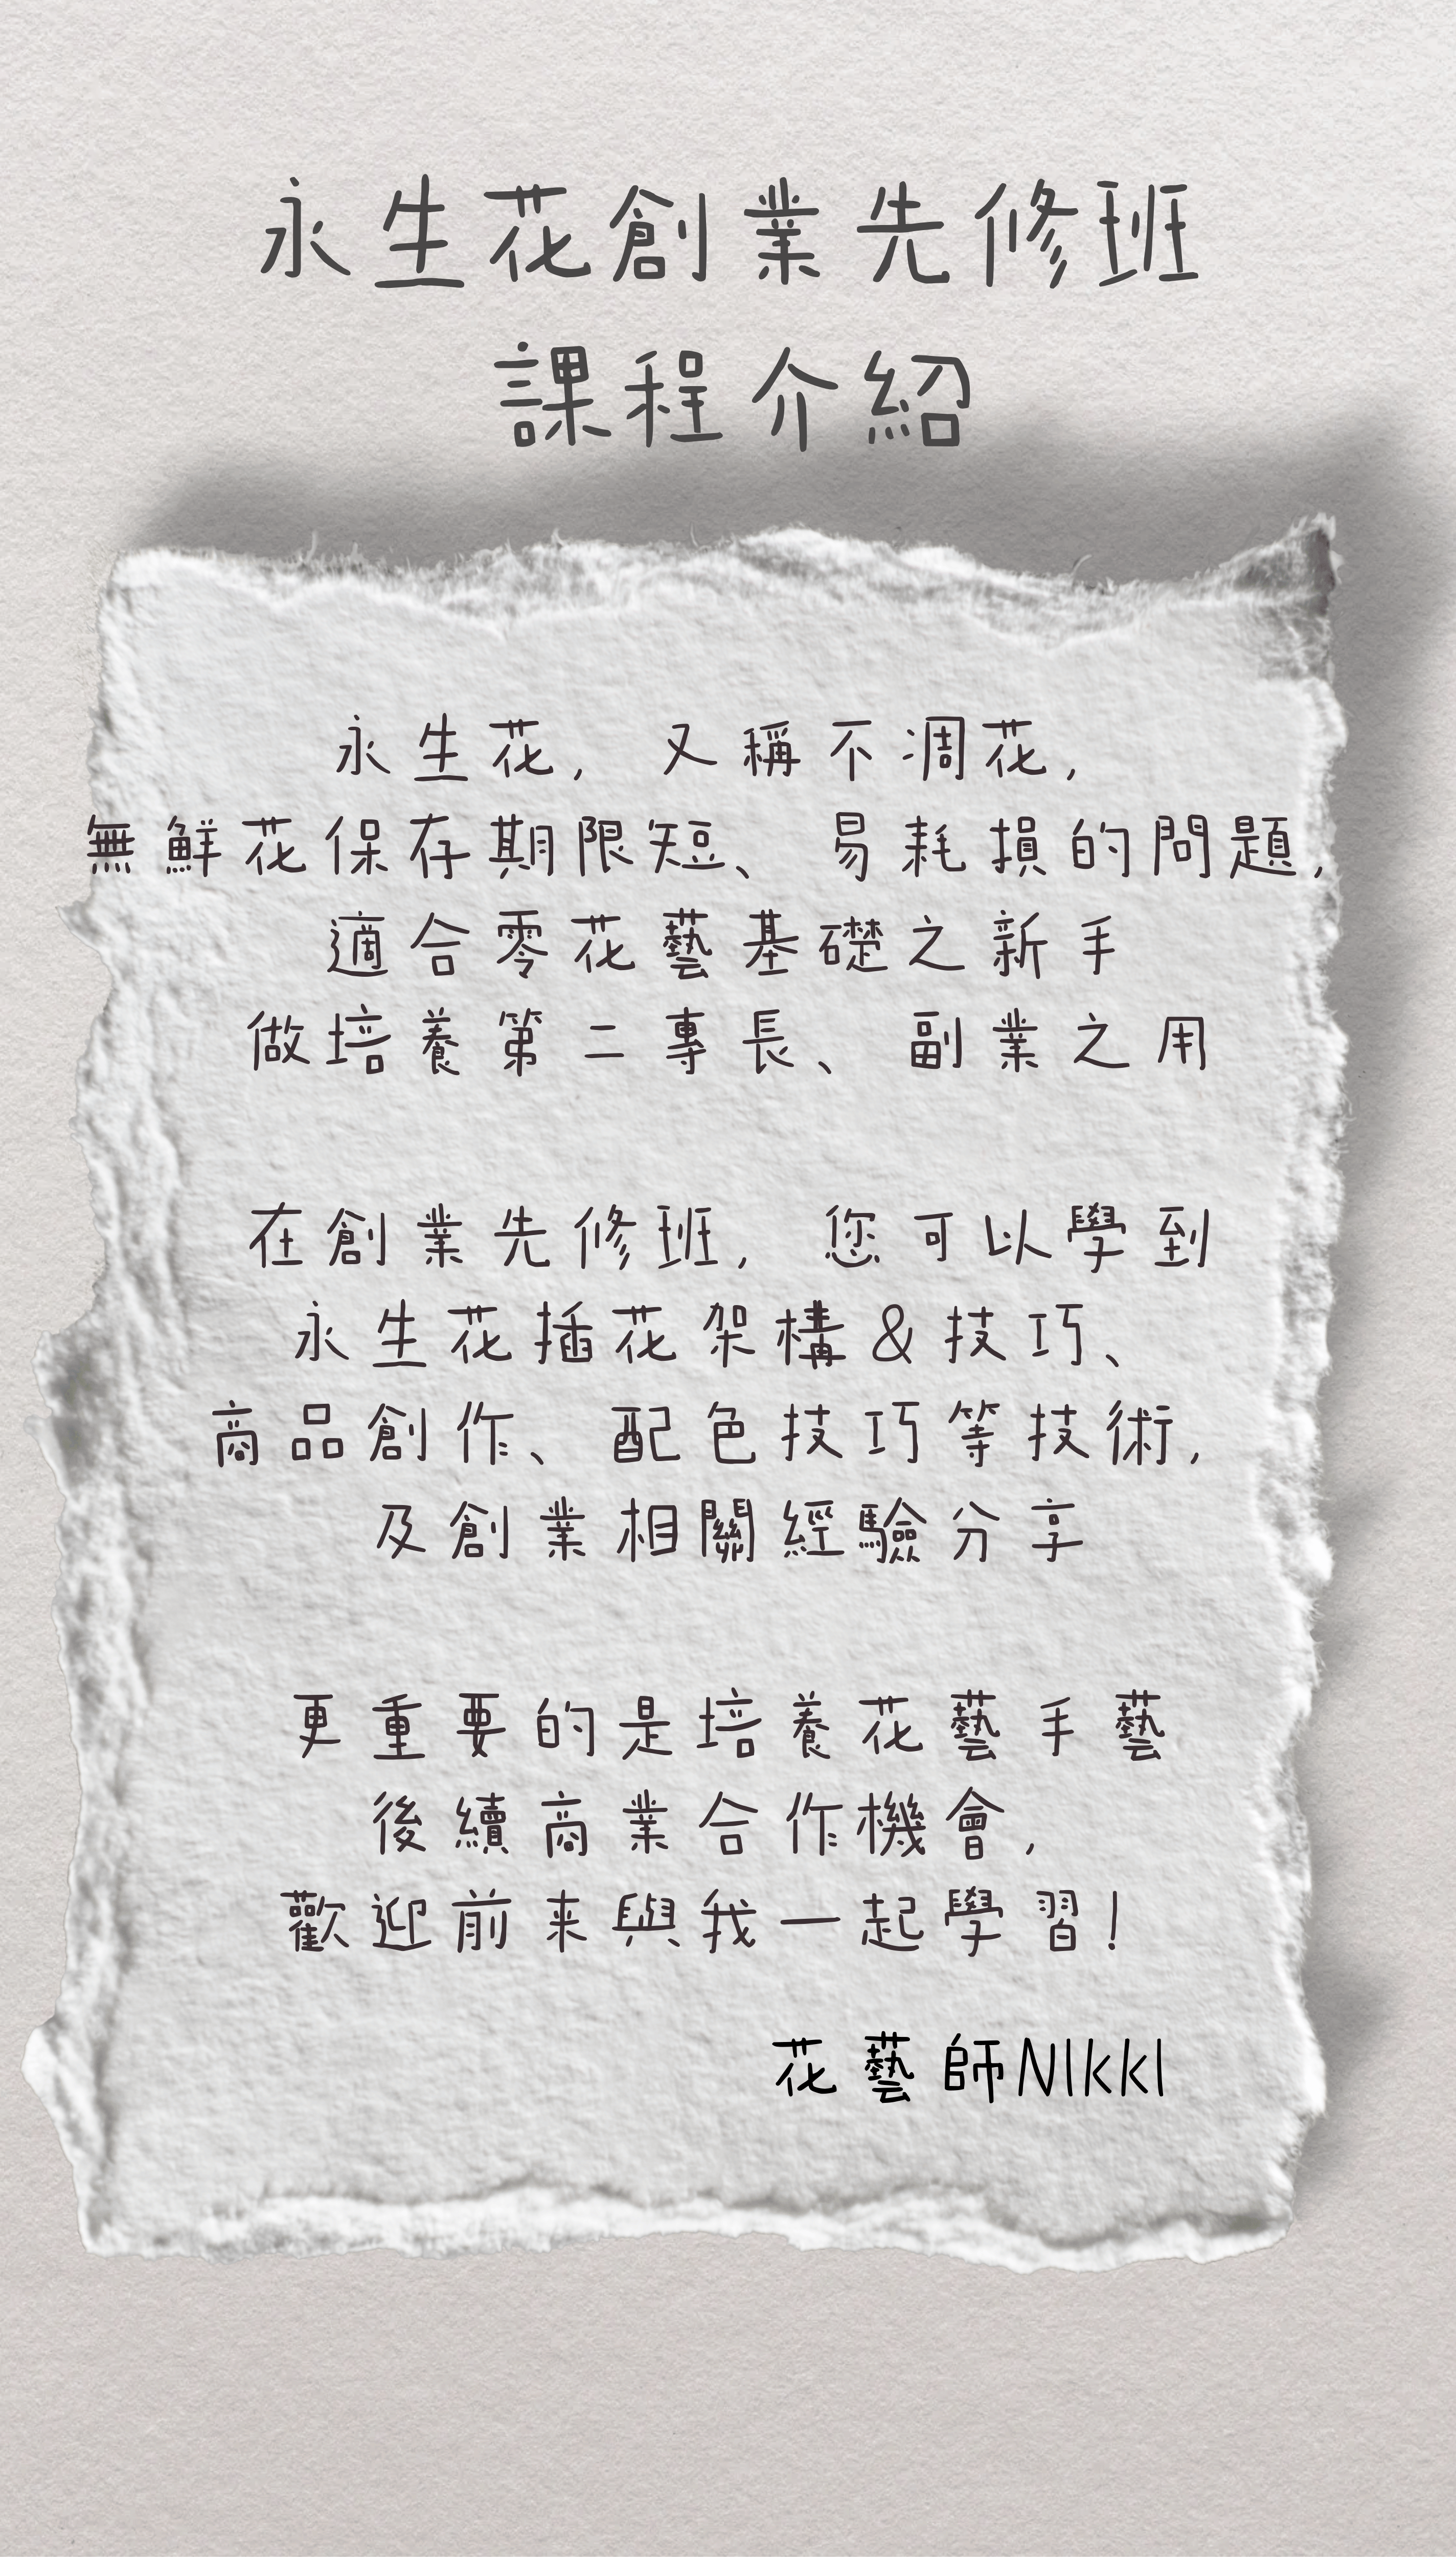 永生花創業先修班
課程介紹
永生花，又稱不凋花，
無鮮花保存期限短、易耗損的問題，
適合零花藝基礎之新手
做培養第二專長、副業之用
在創業先修班，您可以學到
永生花插花架構&技巧、
商品創作、配色技巧等技術，
及創業相關經驗分享
更重要的是培養花藝手藝
後續商業合作機會，
歡迎前來與我一起學習！
花藝師NIkkI